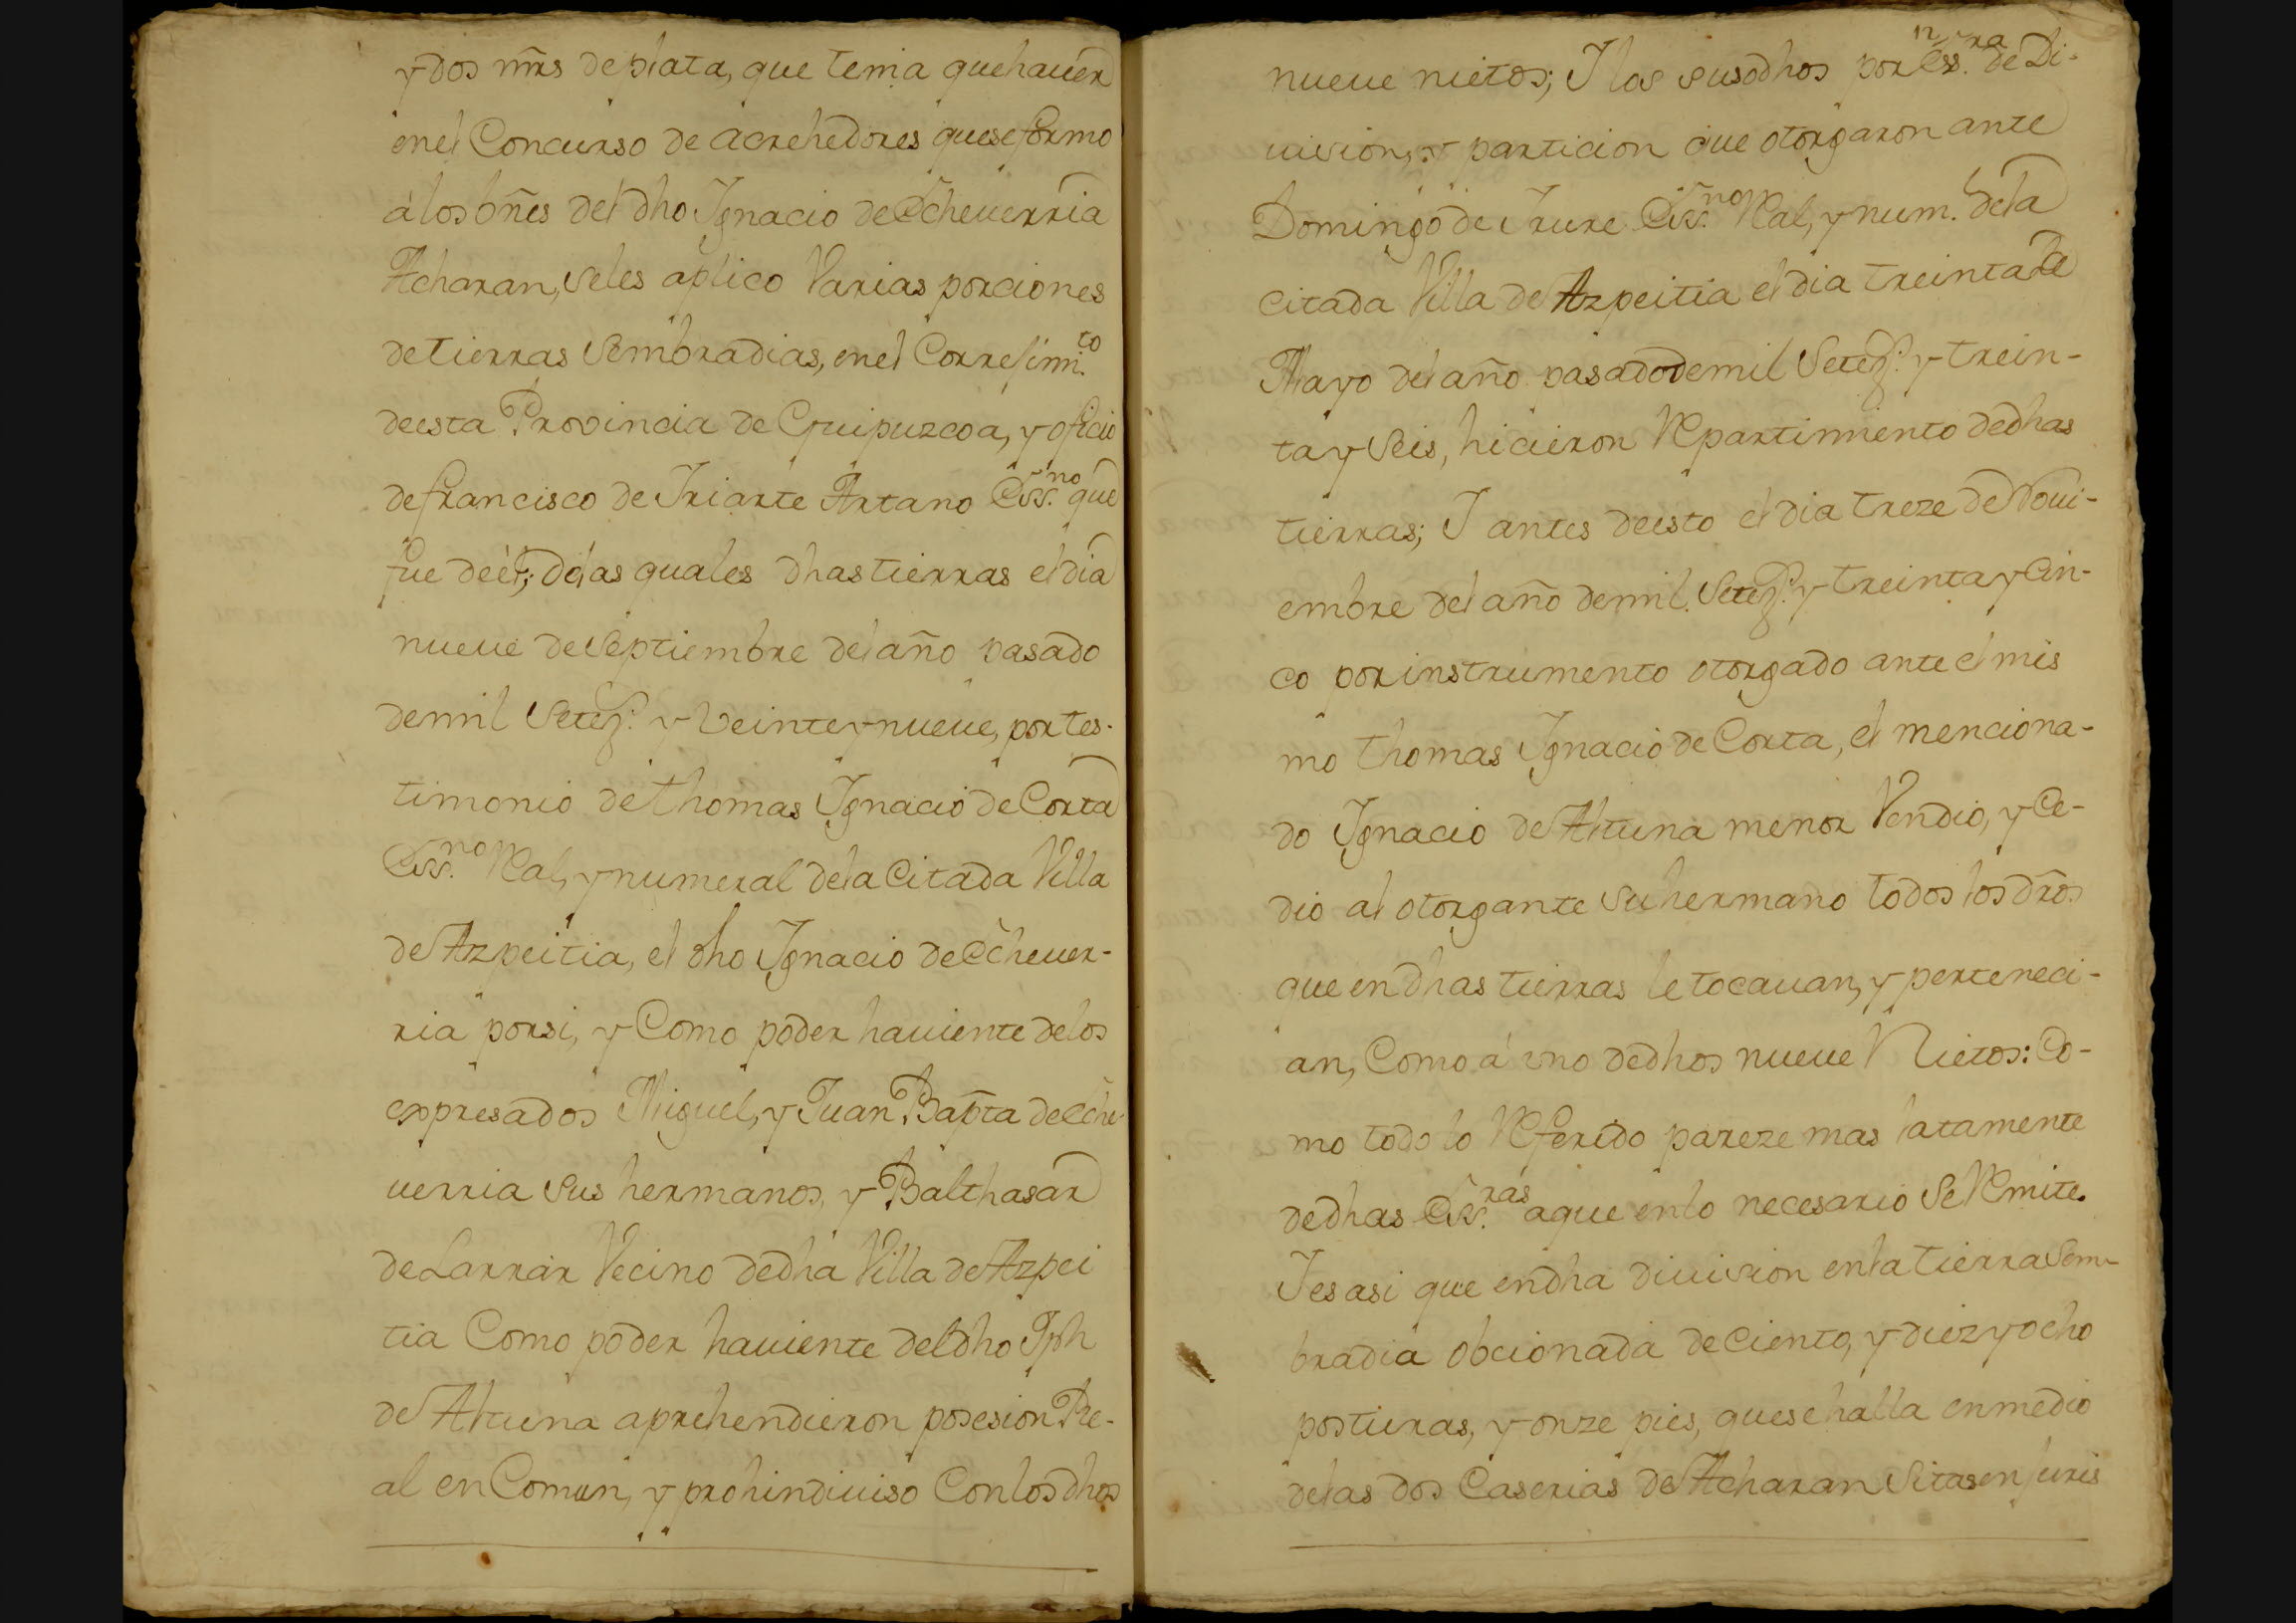 y dos mr̃s de plata, que tenia que haver
en el Concurso de acrehedores que se formo
à los bñes del dho Ygnacio de Echeverria
Acharan, se les aplico Varias porciones
de tierras Sembradias, en el Corresim.to
de esta Provincia de Guipuzcoa, y oficio
de francisco de Yriarte Artano Ess.no que
fue de èl; de las quales dhas tierras el dia
nueve de Septiembre del año pasado
de mil Setez.s y Veinte y nueve, por tes-
timonio de thomas Ygnacio de Corta
Ess.no Real, y numeral de la Citada Villa
de Azpeitia, el dho Ygnacio de Echever-
ria por si, y Como poder haviente de los
expresados Miguel, y Juan Bapta de Eche
verria sus hermanos, y Balthasar
de Larrar Vecino de dha Villa de Azpei
tia Como poder haviente del dho Jph
de Altuna aprehendieron posesion Re-
al en Comun, y prohindiviso Con los dhos
nueve nietos; Y los susodhos por Ess.ra de Di-
vision, y particion que otorgaron ante
Domingo de Yrure Ess.no Real, y num.l de la
Citada Villa de Azpeitia el dia treinta de
Mayo del año pasado de mil Setez.s y trein-
ta y Seis, hicieron Repartimiento de dhas
tierras; Y antes de esto el dia treze de Novi-
embre del año de mil Setez.s y treinta y Cin-
co por instrumento otorgado ante el mis
mo thomas Ygnacio de Corta, el menciona-
do Ygnacio de Altuna menor Vendio, y Ce-
dio al otorgante su hermano todos los dr̃os
que en dhas tierras le tocavan, y perteneci-
an, Como à uno de dhos nueve Nietos: Co-
mo todo lo Referido pareze mas latamente
de dhas Ess.ras a que en lo necesario se Remite.
Y es asi que en dha division en la tierra Sem-
bradia obcionada de Ciento, y diez y ocho
posturas, y onze pies, que se halla en medio
de las dos Caserias de Acharan Sitas en Juris